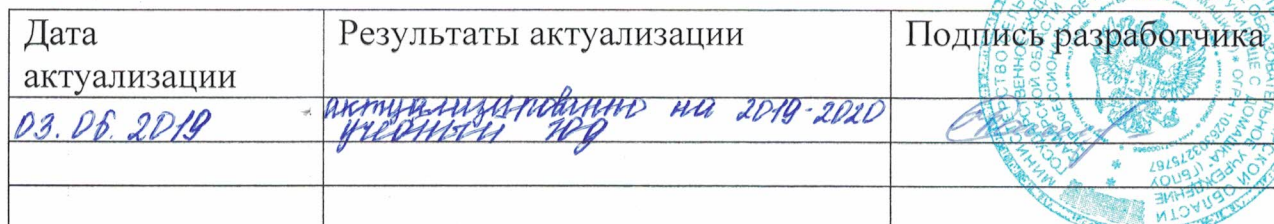 Дата
актуализации
Результаты актуализации
Подпись разработчика
03.06.2019
актуализированно на 2019-2020
учебный год